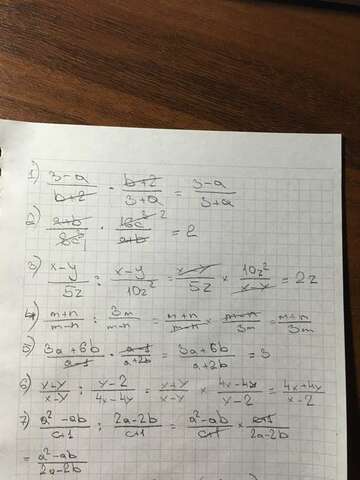 1) 3-a/b+2 · b+2/3+a = 3-a/3+a
2) a+b/8c³ · 16c³ 2/a+b = 2
3) x-y/5z : x-y/10z² = x-y/5z × 10z²/x-y = 2z
4) m+n/m-n : 3m/m-n = m+n/m-n × m-n/3m = m+n/3m
5) 3a+6b/a-1 · a-1/a+2b = 3a+6b/a+2b = 3
6) x+y/x-y : y-2/4x-4y = x+y/x-y × 4x-4y/y-2 = 4x+4y/x-2
7) a²-ab/c+1 : 2a-2b/c+1 = a²-ab/c+1 × c+1/2a-2b
= a²-ab/2a-2b